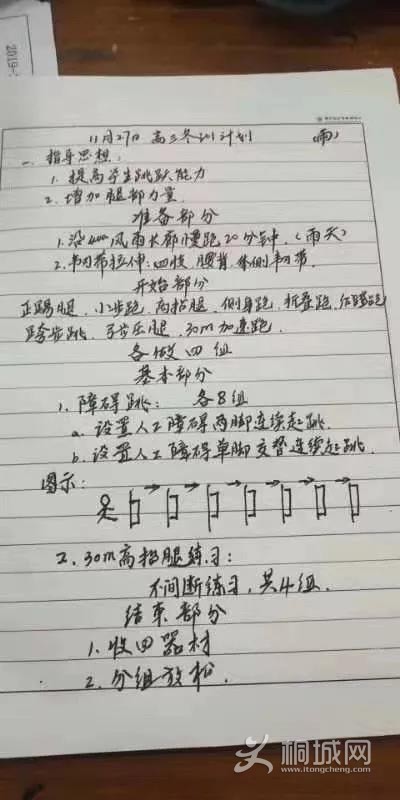 2019-
11月27日 高三冬训计划 (雨)
一、指导思想:
1. 提高学生跳跃能力
2. 增加腿部力量.
准备部分
1. 沿400m风雨长廊慢跑20分钟.(雨天)
2. 韧带拉伸:四肢、腰背、体侧韧带.
开始部分
正踢腿、小步跑、高抬腿、侧身跑、折叠跑、
跨步跳、弓步压腿、30m加速跑.
各做四组
基本部分
1. 障碍跳: 各8组
a. 设置人工障碍两脚连续起跳.
b. 设置人工障碍单脚交替连续起跳.
图示:
2. 30m高抬腿练习:
不间断练习,共4组.
结束部分
1. 收回器材
2. 分组放松.
桐城网
www.itongcheng.com